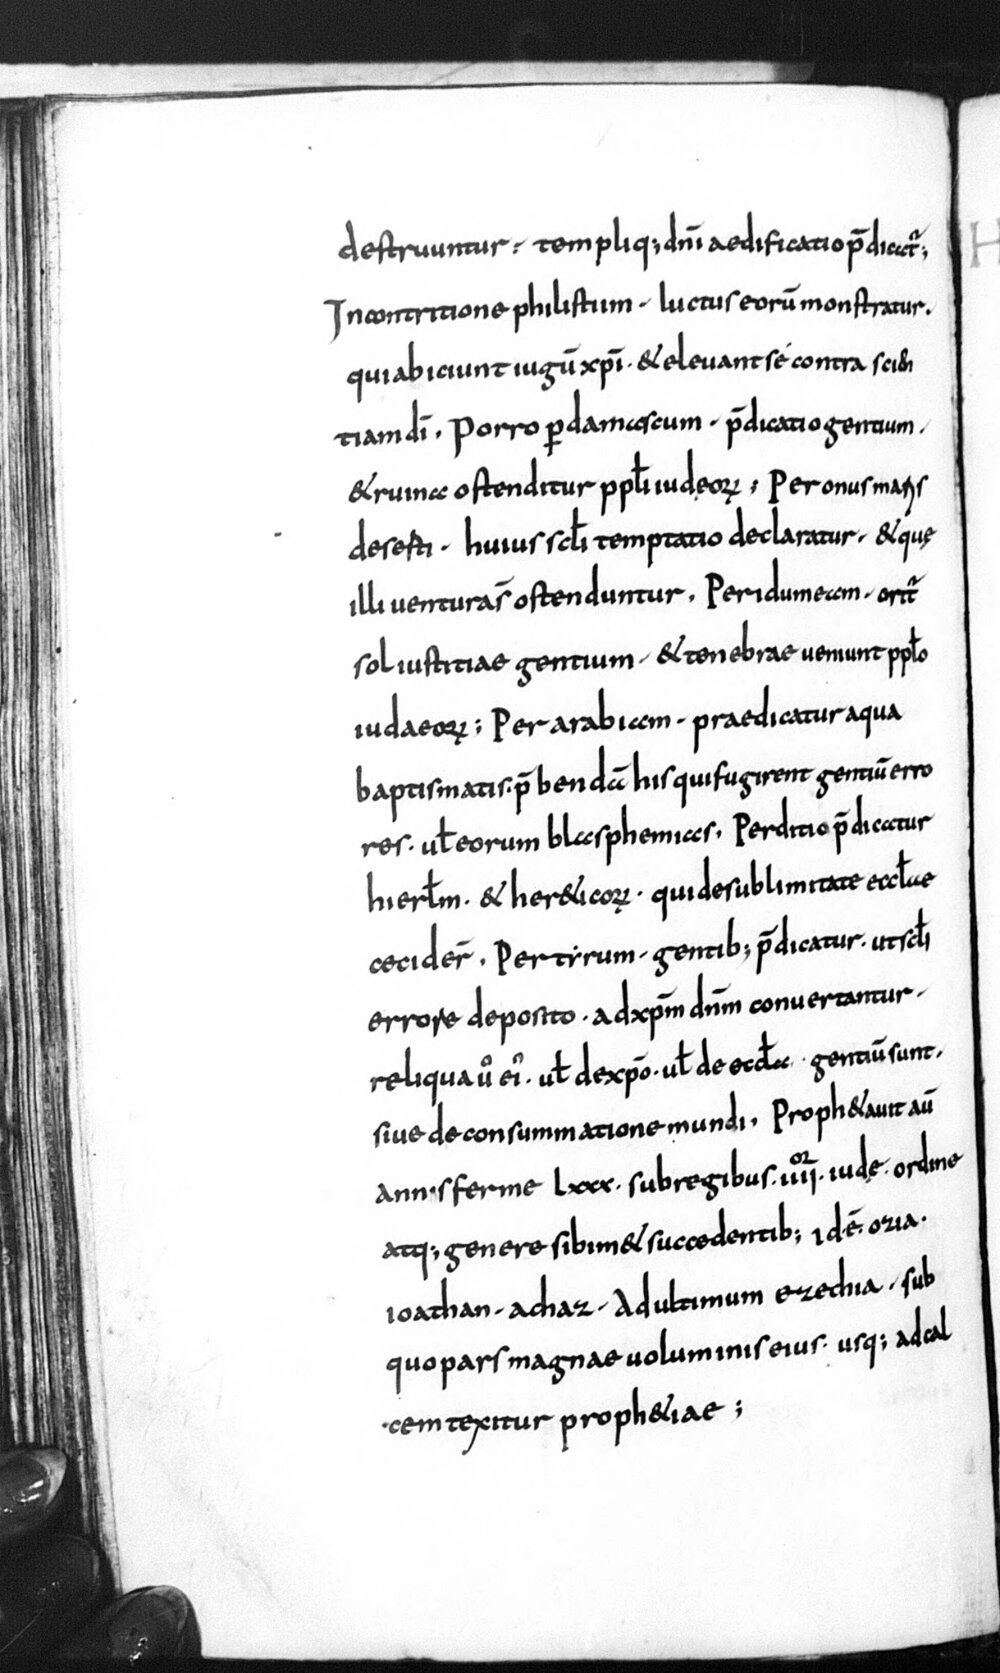 destruuntur· templiq; dñi aedificatio p̄dicat᷑;
In contritione philistiim· luctus eorū monstratur.
qui abiciunt iugū xp̄i· & elevant sé contra sciēn
tiam dī. Porro ꝑ damascum· p̄dicatio gentium.
& ruina ostenditur ppłi iudęoꝝ; Per onus maris
deserti· huius scłi temptatio declaratur· & quę
illi venturas̄ ostenduntur. Per idumeam· orit᷑
sol iustitiae gentium· & tenebrae veniunt ppło
iudaeoꝝ; Per arabiam· praedicatur aqua
baptismatis· p̄bendā his qui fugirent gentiū erro
res· uł eorum blasphemias. Perditio p̄dicatur
hierłm· & her&icoꝝ· qui de sublimitate eccłae
cecider̄. Per tẏrum· gentib; p̄dicatur· ut scłi
errore deposito· ad xp̄m dn̄m convertantur·
reliqua ů ei᷑· uł de xp̄o· uł de eccła· gentiū sunt.
sive de consummatione mundi. Proph&avit aū
annis ferme lxxx· sub regibus· iiiiᵒʳ· iudę· ordine
atq; genere sibim& succedentib; id· ē· ozia·
ioathan· achaz· Ad ultimum ezechia· sub
quo pars magna e voluminis eius· usq; ad cal
cem texitur proph&iae;
H